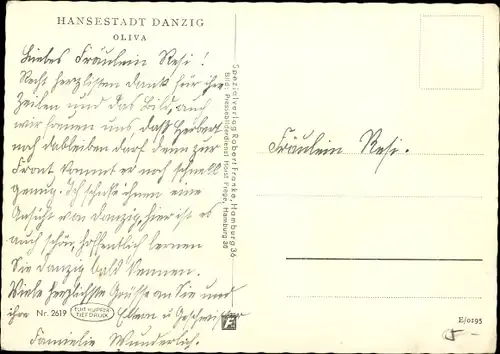 HANSESTADT DANZIG
OLIVA
Liebes Fräulein Resi!
Recht herzlichsten Dank für ihre
Zeilen und das Bild, auch
wir freuen uns, daß Herbert
noch dableiben darf denn zur
Front kommt er noch schnell
genug. Ich schicke ihnen eine
Ansicht von Danzig, hier ist es
auch schön, hoffentlich lernen
Sie Danzig bald kennen.
Viele herzlichste Grüsse an Sie und
ihre Eltern u Geschwister
Familie Wunderlich.
Nr. 2619
KUPFER
TIEFDRUCK
Spezialverlag Robert Franke, Hamburg 36
Bild: Pressebilderdienst Horst Hamburg 36
F
Fräulein Resi.
E/0195